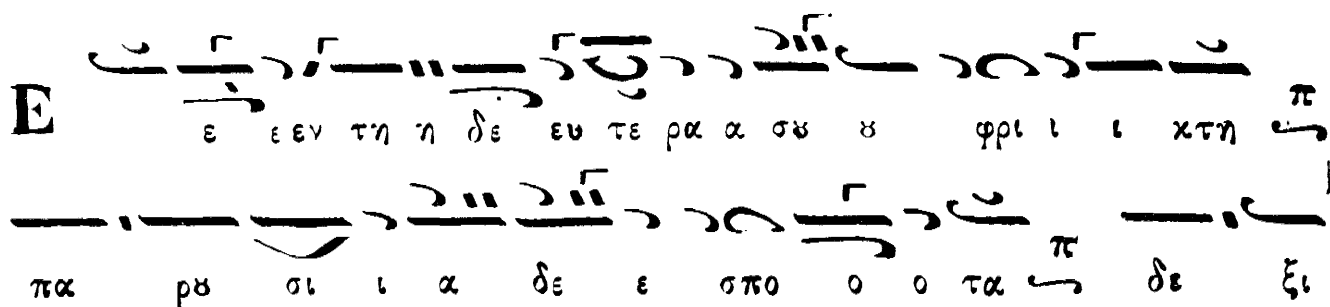 Ε ε ε εν τη η δε ευ τε ρα α σȣ ȣ φρι ι ι κτη π
πα ρȣ σι ι α δε ε σπο ο ο τα π δε ξι